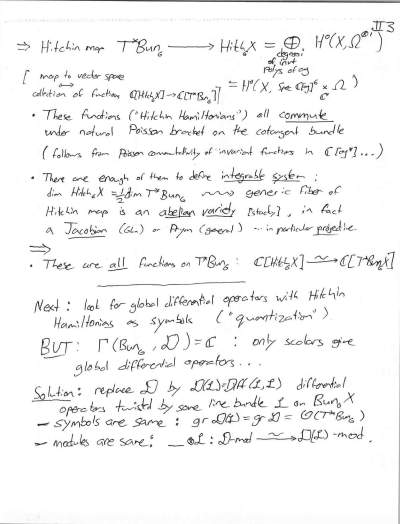 II 3
⇒ Hitchin map T*Bun_G ⟶ Hitch_G X = ⊕ H⁰(X, Ω^⊗i)
degrees i of invt polys of g
[ map to vector space ⟷ collection of functions C[Hitch_G X] → C[T*Bun_G] ] = H⁰(X, Spec C[g]^G ×_{C*} Ω)
• These functions ("Hitchin Hamiltonians") all commute
under natural Poisson bracket on the cotangent bundle
(follows from Poisson commutativity of invariant functions in C[g*]...)
• There are enough of them to define integrable system:
dim Hitch_G X = ½ dim T*Bun_G ⇝ generic fiber of
Hitchin map is an abelian variety [stacky], in fact
a Jacobian (GLn) or Prym (general) ... in particular projective.
⇒
• These are all functions on T*Bun_G: C[Hitch_G X] ⥲ C[T*Bun_G X]
Next: look for global differential operators with Hitchin
Hamiltonians as symbols ("quantization")
BUT: Γ(Bun_G, D) = C : only scalars give
global differential operators...
Solution: replace D by D(L) = Diff(L, L) differential
operators twisted by some line bundle L on Bun_G X
– symbols are same: gr D(L) = gr D = O(T*Bun_G)
– modules are same: _⊗L : D-mod ⥲ D(L)-mod.